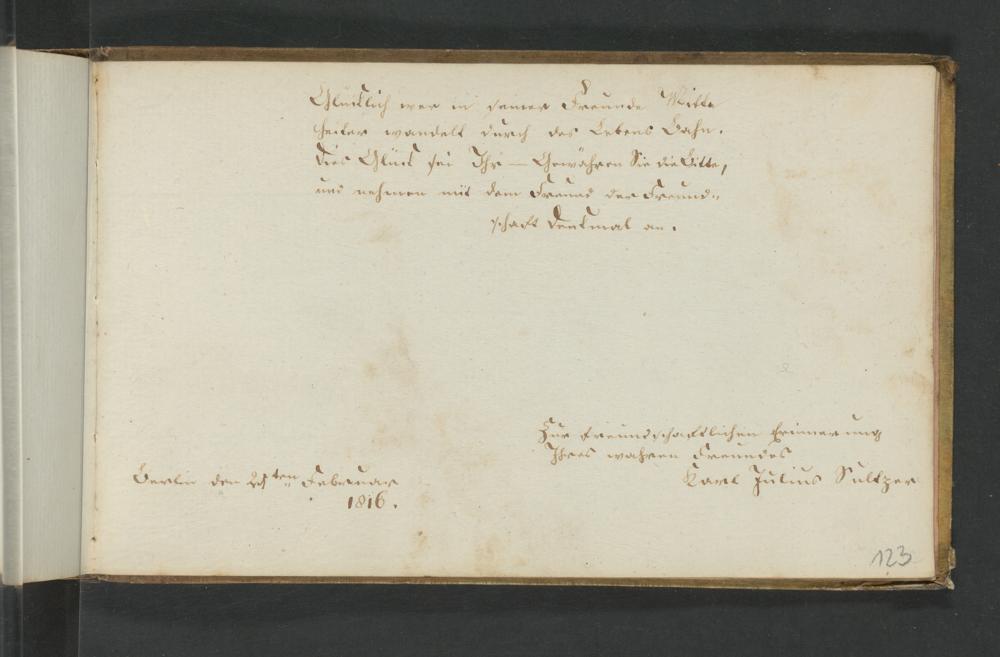 Glücklich wer in seiner Freunde Mitte
heiter wandelt durch des Lebens Bahn.
Dies Glück sei Ihr — Gewähren Sie die Bitte,
und nehmen mit dem Freund der Freund-
schaft Denkmal an.
Zur freundschaftlichen Erinnerung
Ihres wahren Freundes
Karl Julius Sultzer
Berlin den ten Februar
1816.
123